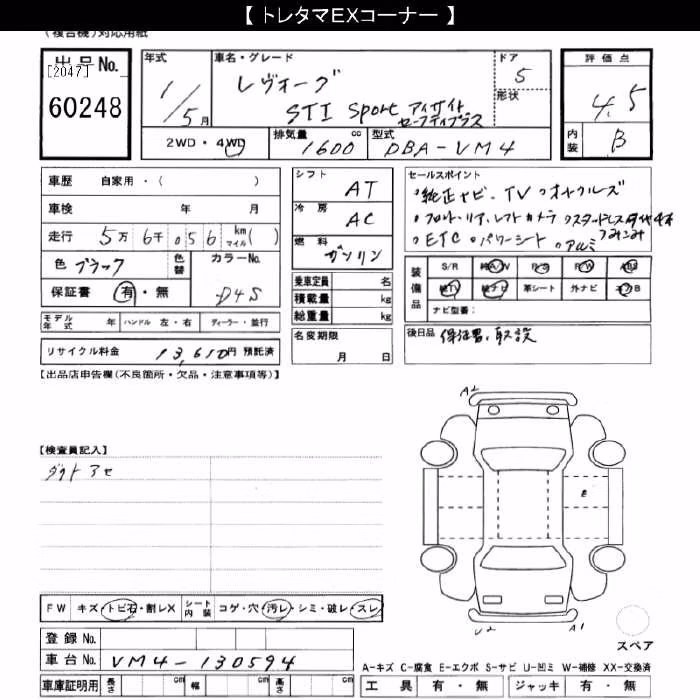 【 トレタマEXコーナー 】
(複合機)対応用紙
出品No.
[2047]
60248
年式
1/5月
車名・グレード
レヴォーグ
STI Sport アイサイト
セーフティプラス
ドア
5
形状
評価点
4.5
内装
B
2WD・4WD
排気量 1600 cc
型式 DBA-VM4
車歴 自家用・( )
車検 年 月
走行 5万6千056 km マイル( )
色 ブラック
色替
カラーNo.
D4S
保証書 有・無
モデル年式 年 ハンドル 左・右 ディーラー・並行
リサイクル料金 13,610円 預託済
シフト AT
冷房 AC
燃料 ガソリン
乗車定員 名
積載量 kg
総重量 kg
名変期限
月 日
セールスポイント
・純正ナビ、TV
・フロント・リア、レフトカメラ
・ETC ・パワーシート ・アルミ
装備品
S/R 純A/V P/S P/W ABS
純TV 純ナビ 革シート 外ナビ エアB
ナビ型番:
後日品 保証書、取説
【出品店申告欄(不良箇所・欠品・注意事項等)】
【検査員記入】
FW キズ・トビ石・割レX シート内装 コゲ・穴・汚レ・シミ・破レ・スレ
登録No.
車台No. VM4-130594
車庫証明用 長さ cm 幅 cm 高さ cm
A2
E
U2
A1
スペア
A-キズ C-腐食 E-エクボ S-サビ U-凹ミ W-補修 XX-交換済
工具 有・無 ジャッキ 有・無